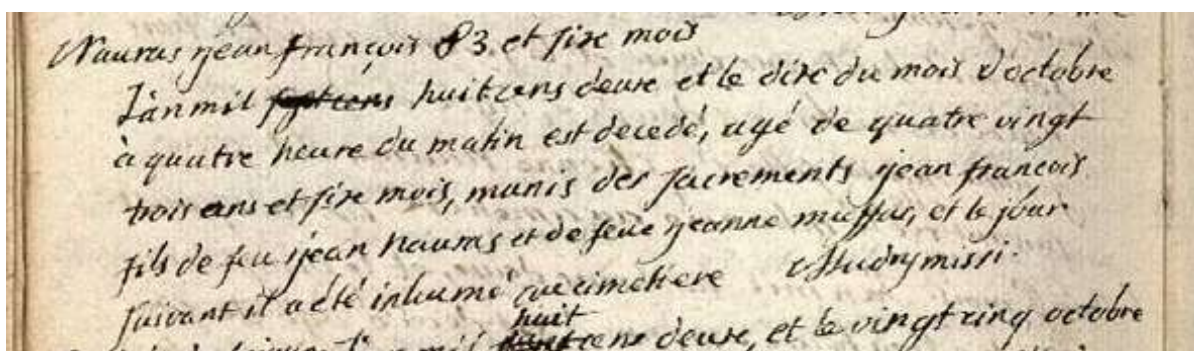 Nauras jean françois 83 et sixe mois
L'an mil sept cens huit cens deuxe et le dixe du mois d'octobre
à quatre heure du matin est decedé, agé de quatre vingt
trois ans et sixe mois, munis des sacrements jean françois
fils de feu jean nauras et de feue jeanne muffat, et le jour
suivant il a été inhumé au cimetiere Mudry missi.
huit
cens deuxe, et le vingt cinq octobre